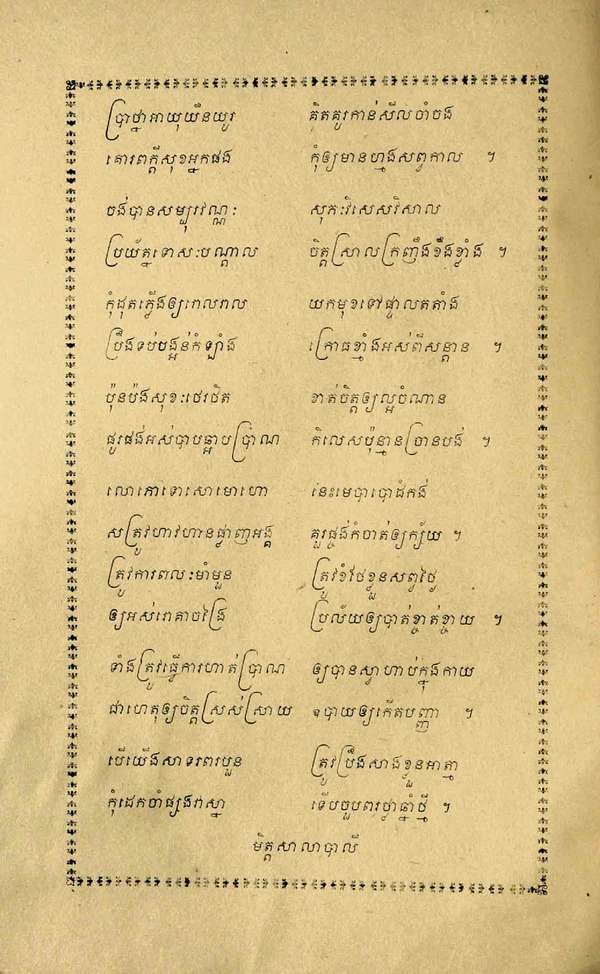 ប្រាថ្នាអាយុយឺនយូរ គិតគួរកាន់សីលចាំចង
គោរពក្តីសុខអ្នកផង កុំឲ្យមានហ្មងសព្វកាល ។
ចង់បានសម្បុរវណ្ណៈ សុកៈវិសេសវិសាល
ប្រយ័ត្នទោសៈបណ្តាល ចិត្តស្រាលក្រញឹងខឹងខ្លាំង ។
កុំដុតភ្លើងឲ្យរាលរាល យកមុខទៅផ្ទាលតតាំង
ប្រឹងទប់បង្អន់កំឡាំង ក្រោធខ្លាំងអស់ពីសន្តាន ។
ប៉ុនប៉ងសុខៈថេរថិត ខាត់ចិត្តឲ្យល្អចំណាន
ផូរផង់អស់បាបឆ្អាបប្រាណ កិលេសប៉ុន្មានច្រានបង់ ។
លោភោទោសោមោហោ នេះមេបាបោដំកង់
សត្រូវហាវហានផ្ចាញអង្គ គួរផ្ចង់កំចាត់ឲ្យក្ស័យ ។
ត្រូវការពលៈមាំមួន ត្រូវខំថែខ្លួនសព្វថ្ងៃ
ឲ្យអស់រោគាចង្រៃ ប្រល័យឲ្យបាត់ខ្ចាត់ខ្ចាយ ។
ទាំងត្រូវធ្វើការហាត់ប្រាណ ឲ្យបានស្វាហាប់ក្នុងកាយ
ជាហេតុឲ្យចិត្តស្រស់ស្រាយ ឧបាយឲ្យកើតបញ្ញា ។
បើយើងសាទរពរបួន ត្រូវប្រឹងសាងខ្លួនអាត្មា
កុំដេកចាំផ្សងវាស្នា ទើបចួបពរថ្លាឆ្នាំថ្មី ។
មិត្តសាលាបាលី